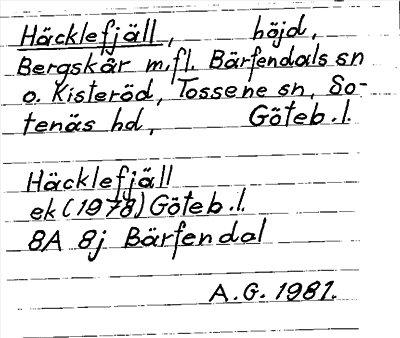 Häcklefjäll, höjd,
Bergskär m.fl. Bärfendals sn
o. Kisteröd, Tossene sn, So-
tenäs hd, Göteb.l.
Häcklefjäll
ek (1978) Göteb.l.
8A 8j Bärfendal
A.G. 1981.